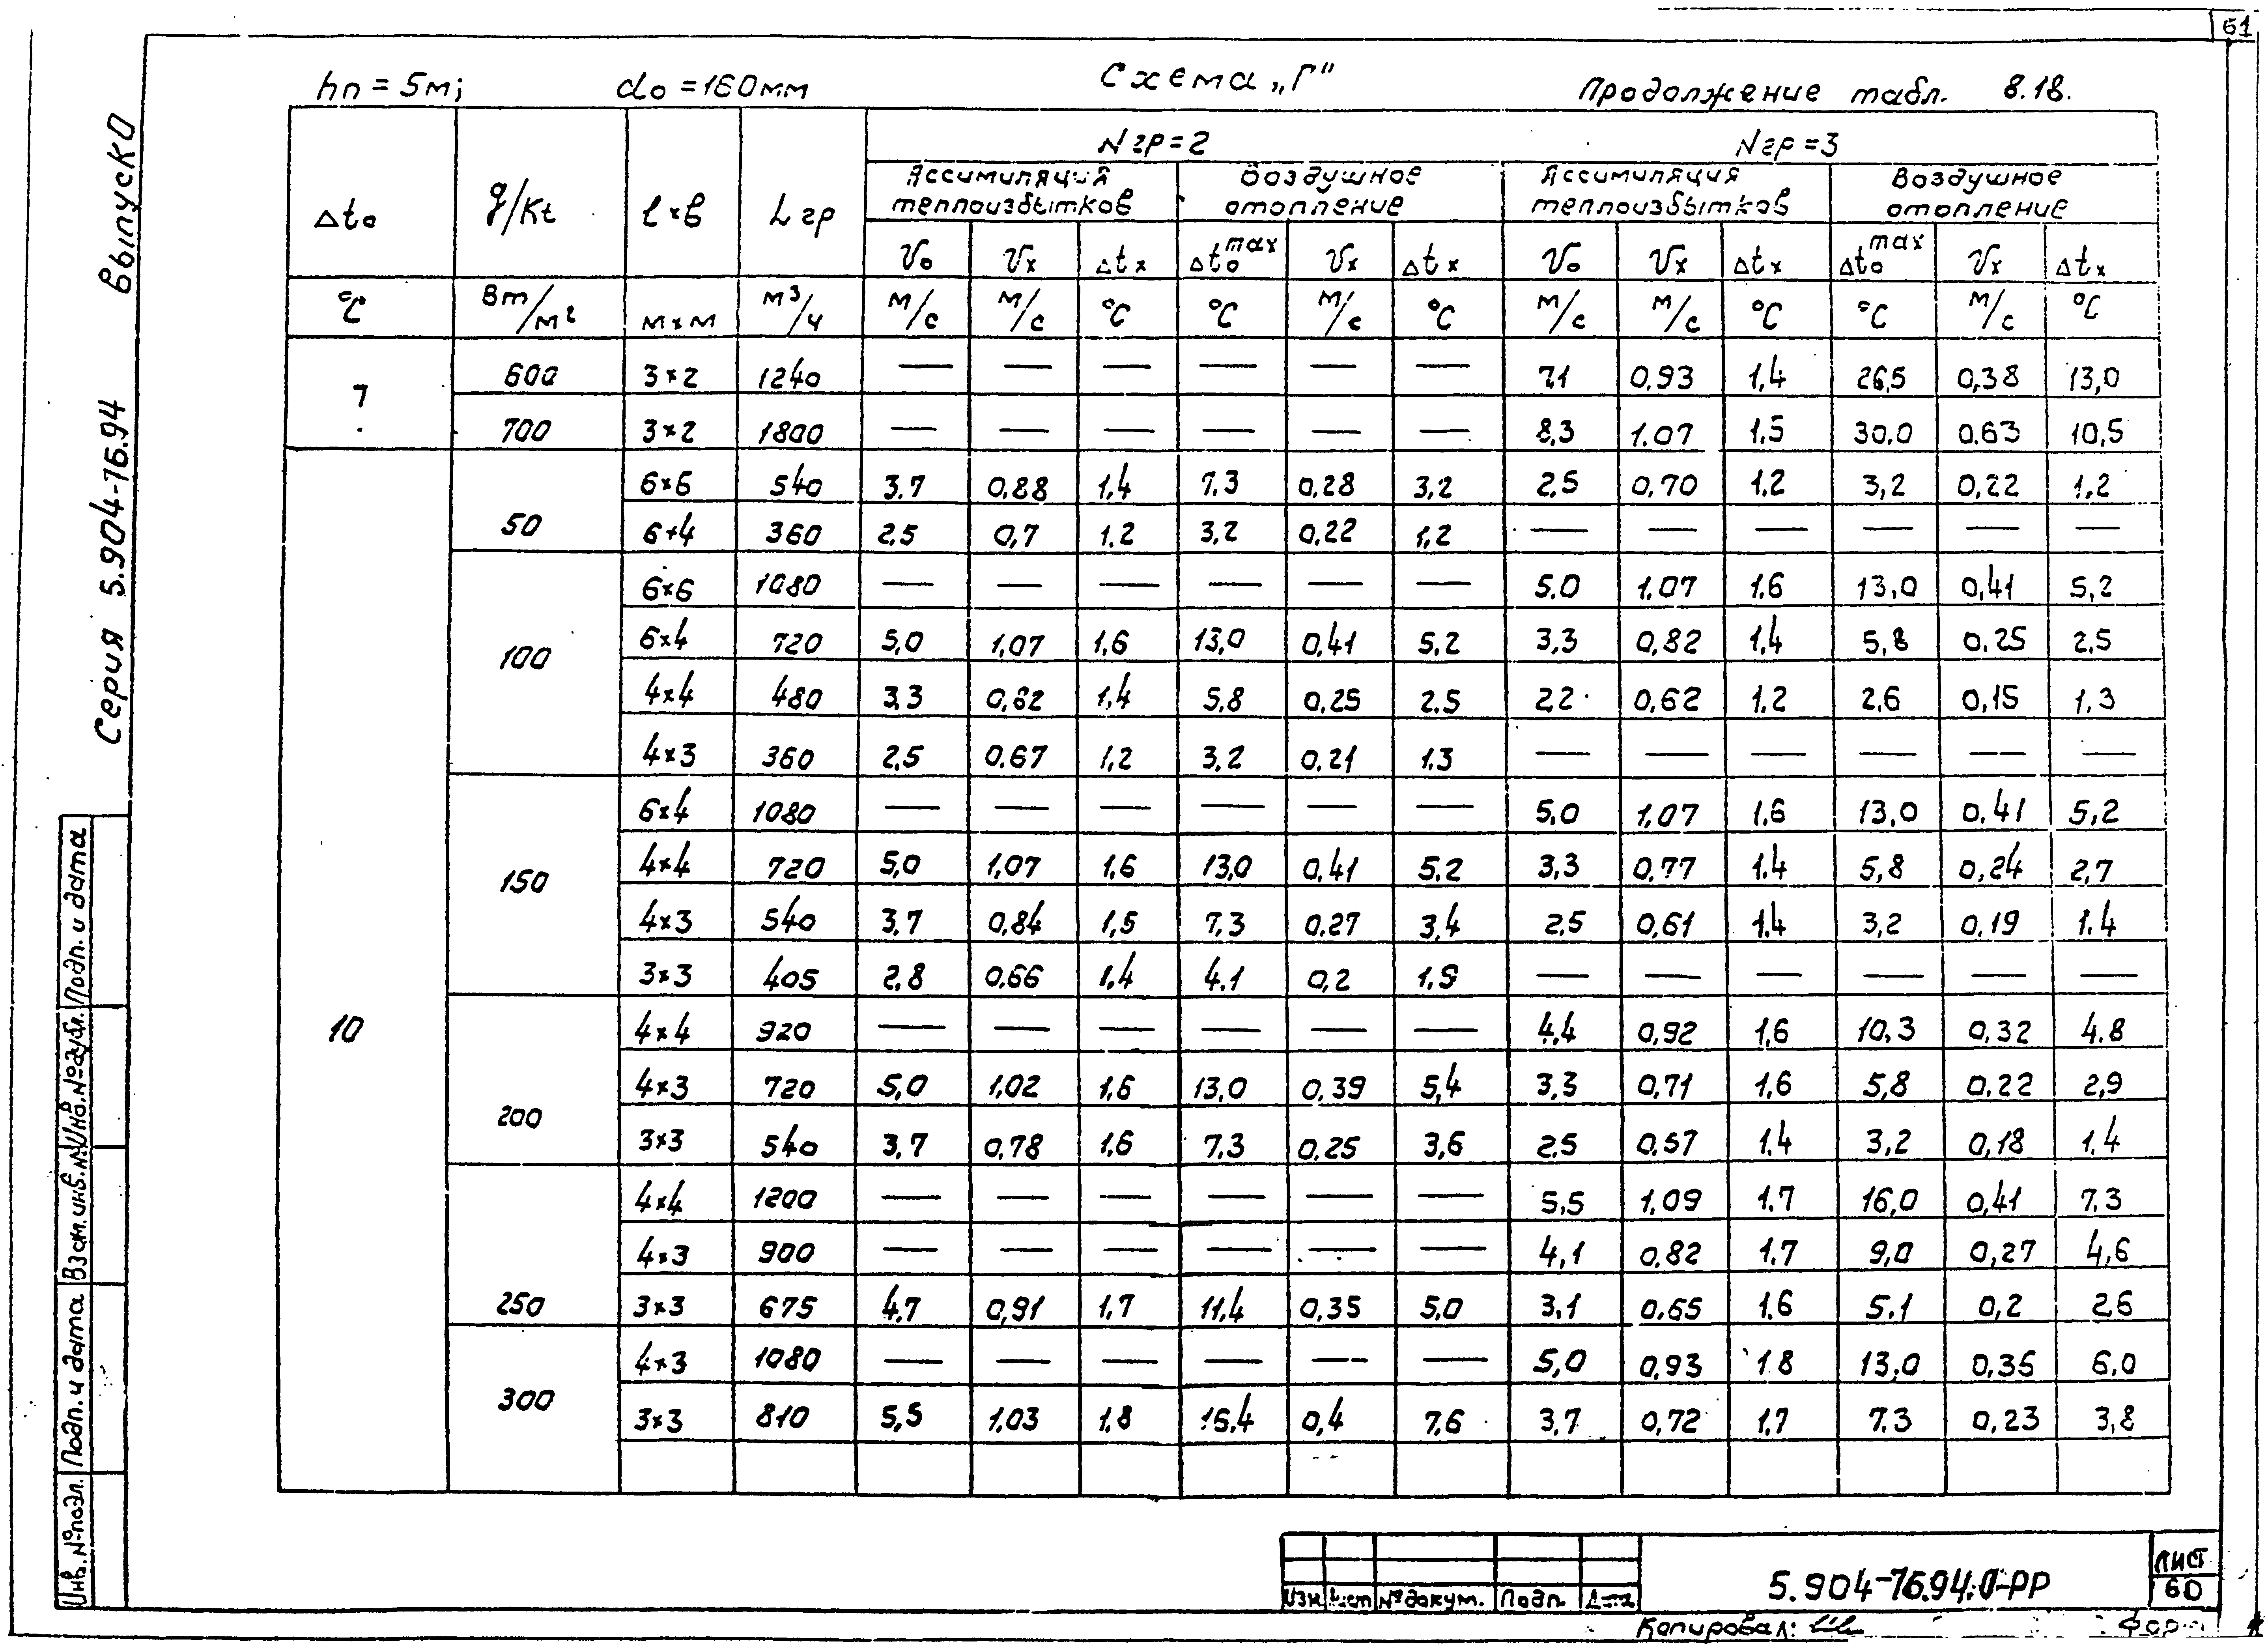 61
hп = 5м; dо = 160мм Схема „Г" Продолжение табл. 8.18.
Серия 5.904-76.94 Выпуск 0
Δtо q/Kt l×в Lгр Nгр=2 Nгр=3
Ассимиляция теплоизбытков Воздушное отопление Ассимиляция теплоизбытков Воздушное отопление
Vо Vх Δtх Δtо max Vх Δtх Vо Vх Δtх Δtо max Vх Δtх
°C Вт/м² м×м м³/ч м/с м/с °C °C м/с °C м/с м/с °C °C м/с °C
7 600 3×2 1240 — — — — — — 7,1 0,93 1,4 26,5 0,38 13,0
700 3×2 1800 — — — — — — 8,3 1.07 1,5 30.0 0.63 10,5
10 50 6×6 540 3,7 0,88 1,4 7.3 0,28 3,2 2,5 0,70 1.2 3,2 0,22 1,2
6×4 360 2.5 0,7 1.2 3,2 0,22 1,2 — — — — — —
100 6×6 1080 — — — — — — 5.0 1.07 1.6 13,0 0,41 5,2
6×4 720 5,0 1,07 1,6 13,0 0,41 5,2 3,3 0,82 1,4 5,8 0.25 2.5
4×4 480 3,3 0,82 1,4 5,8 0,25 2.5 2,2 0,62 1.2 2,6 0,15 1,3
4×3 360 2,5 0.67 1,2 3,2 0.21 1.3 — — — — — —
150 6×4 1080 — — — — — — 5,0 1,07 1.6 13,0 0,41 5,2
4×4 720 5,0 1,07 1,6 13,0 0,41 5.2 3,3 0.77 1.4 5,8 0,24 2,7
4×3 540 3,7 0,84 1,5 7,3 0,27 3,4 2,5 0,61 1.4 3,2 0,19 1.4
3×3 405 2,8 0.66 1,4 4.1 0,2 1,9 — — — — — —
200 4×4 920 — — — — — — 4,4 0,92 1,6 10,3 0,32 4.8
4×3 720 5,0 1,02 1,6 13,0 0,39 5,4 3,3 0,71 1,6 5,8 0,22 2,9
3×3 540 3,7 0,78 1,6 7,3 0,25 3,6 2,5 0,57 1.4 3,2 0,18 1,4
250 4×4 1200 — — — — — — 5,5 1,09 1.7 16,0 0,41 7.3
4×3 900 — — — — — — 4,1 0,82 1.7 9,0 0,27 4,6
3×3 675 4,7 0,91 1,7 11,4 0,35 5,0 3,1 0.65 1.6 5.1 0,2 2,6
300 4×3 1080 — — — — — — 5,0 0,93 1.8 13,0 0,36 6,0
3×3 810 5,5 1,03 1,8 16.4 0,4 7,6 3,7 0,72 1,7 7.3 0,23 3,8
Инв. № подл. Подп. и дата Взам. инв. № Инв. № дубл. Подп. и дата
Изм Лист № докум. Подп. Дата
5.904-76.94.0-РР
Лист
60
Копировал: